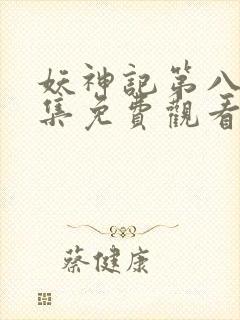 妖神記第八
集免費觀看
蔡健康